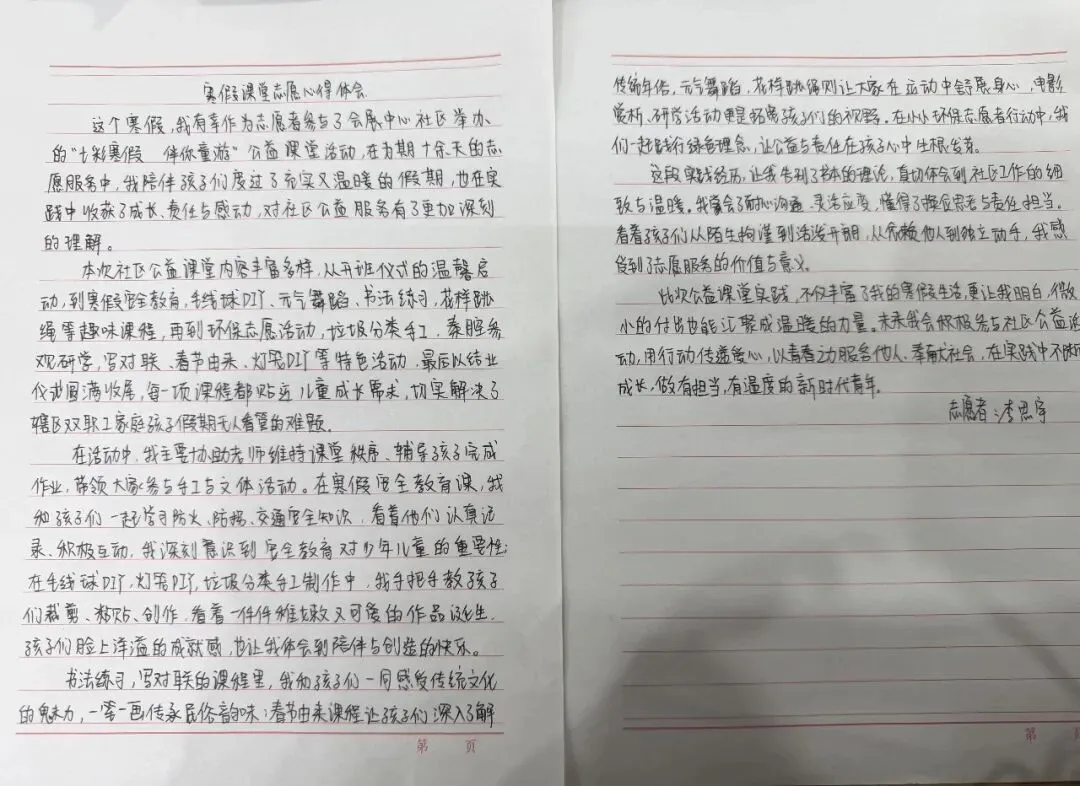 寒假课堂志愿心得体会
这个寒假,我有幸作为志愿者参与了会展中心社区举办
的“七彩寒假 伴你童游”公益课堂活动,在为期十余天的志
愿服务中,我陪伴孩子们度过了充实又温暖的假期,也在实
践中收获了成长、责任与感动,对社区公益服务有了更加深刻
的理解。
本次社区公益课堂内容丰富多样,从开班仪式的温馨启
动,到寒假安全教育,毛线球DIY、元气舞蹈、书法练习,花样跳
绳等趣味课程,再到环保志愿活动,垃圾分类手工、秦腔参
观研学,写对联、春节由来、灯笼DIY等特色活动,最后以结业
仪式圆满收尾,每一项课程都贴近儿童成长需求,切实解决了
辖区双职工家庭孩子假期无人看管的难题。
在活动中,我主要协助老师维持课堂秩序、辅导孩子完成
作业,带领大家参与手工与文体活动。在寒假安全教育课,我
和孩子们一起学习防火、防拐、交通安全知识,看着他们认真记
录、积极互动,我深刻意识到安全教育对少年儿童的重要性;
在毛线球DIY,灯笼DIY,垃圾分类手工制作中,我手把手教孩子
们裁剪、粘贴、创作,看着一件件稚嫩又可爱的作品诞生,
孩子们脸上洋溢的成就感,也让我体会到陪伴与创造的快乐。
书法练习,写对联的课程里,我和孩子们一同感受传统文化
的魅力,一笔一画传承民俗韵味;春节由来课程让孩子们深入了解
第 页
传统年俗,元气舞蹈,花样跳绳则让大家在运动中舒展身心,电影
赏析、研学活动更是拓宽孩子们的视野。在小小环保志愿者行动中,我
们一起践行绿色理念,让公益与责任在孩子心中生根发芽。
这段实践经历,让我告别了书本的理论,真切体会到社区工作的细
致与温暖。我学会了耐心沟通、灵活应变,懂得了换位思考与责任担当。
看着孩子们从陌生拘谨到活泼开朗,从依赖他人到独立动手,我感
受到了志愿服务的价值与意义。
此次公益课堂实践,不仅丰富了我的寒假生活,更让我明白,微
小的付出也能汇聚成温暖的力量。未来我会积极参与社区公益活
动,用行动传递爱心,以青春之力服务他人、奉献社会,在实践中不断
成长,做有担当,有温度的新时代青年。
志愿者:李思宇
第